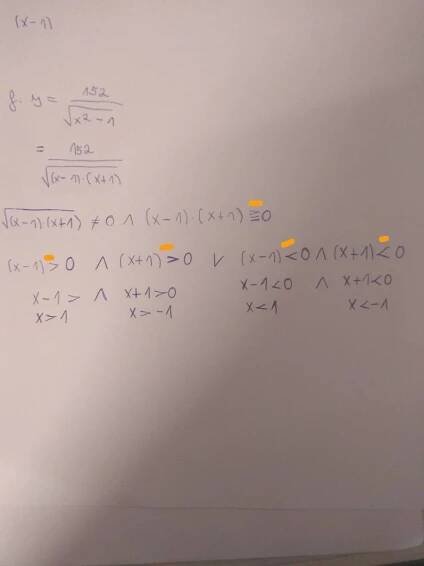 (x-1)
f. y = 152 / √(x² - 1)
= 152 / √((x-1)·(x+1))
√((x-1)·(x+1)) ≠ 0 ∧ (x-1)·(x+1) ≧ 0
(x-1) > 0 ∧ (x+1) > 0 ∨ (x-1) < 0 ∧ (x+1) < 0
x-1 > ∧ x+1>0 x-1<0 ∧ x+1<0
x>1 x>-1 x<1 x<-1